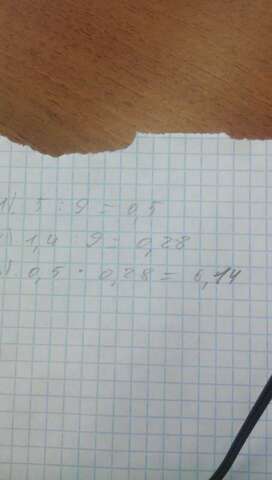 1) 5 : 9 = 0,5
) 1,4 : 9 = 0,28
) 0,5 · 0,28 = 0,14